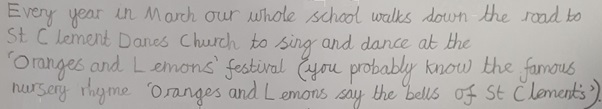 Every year in March our whole school walks down the road to
St Clement Danes Church to sing and dance at the
'Oranges and Lemons' festival (you probably know the famous
nursery rhyme 'Oranges and Lemons say the bells of St Clement's')